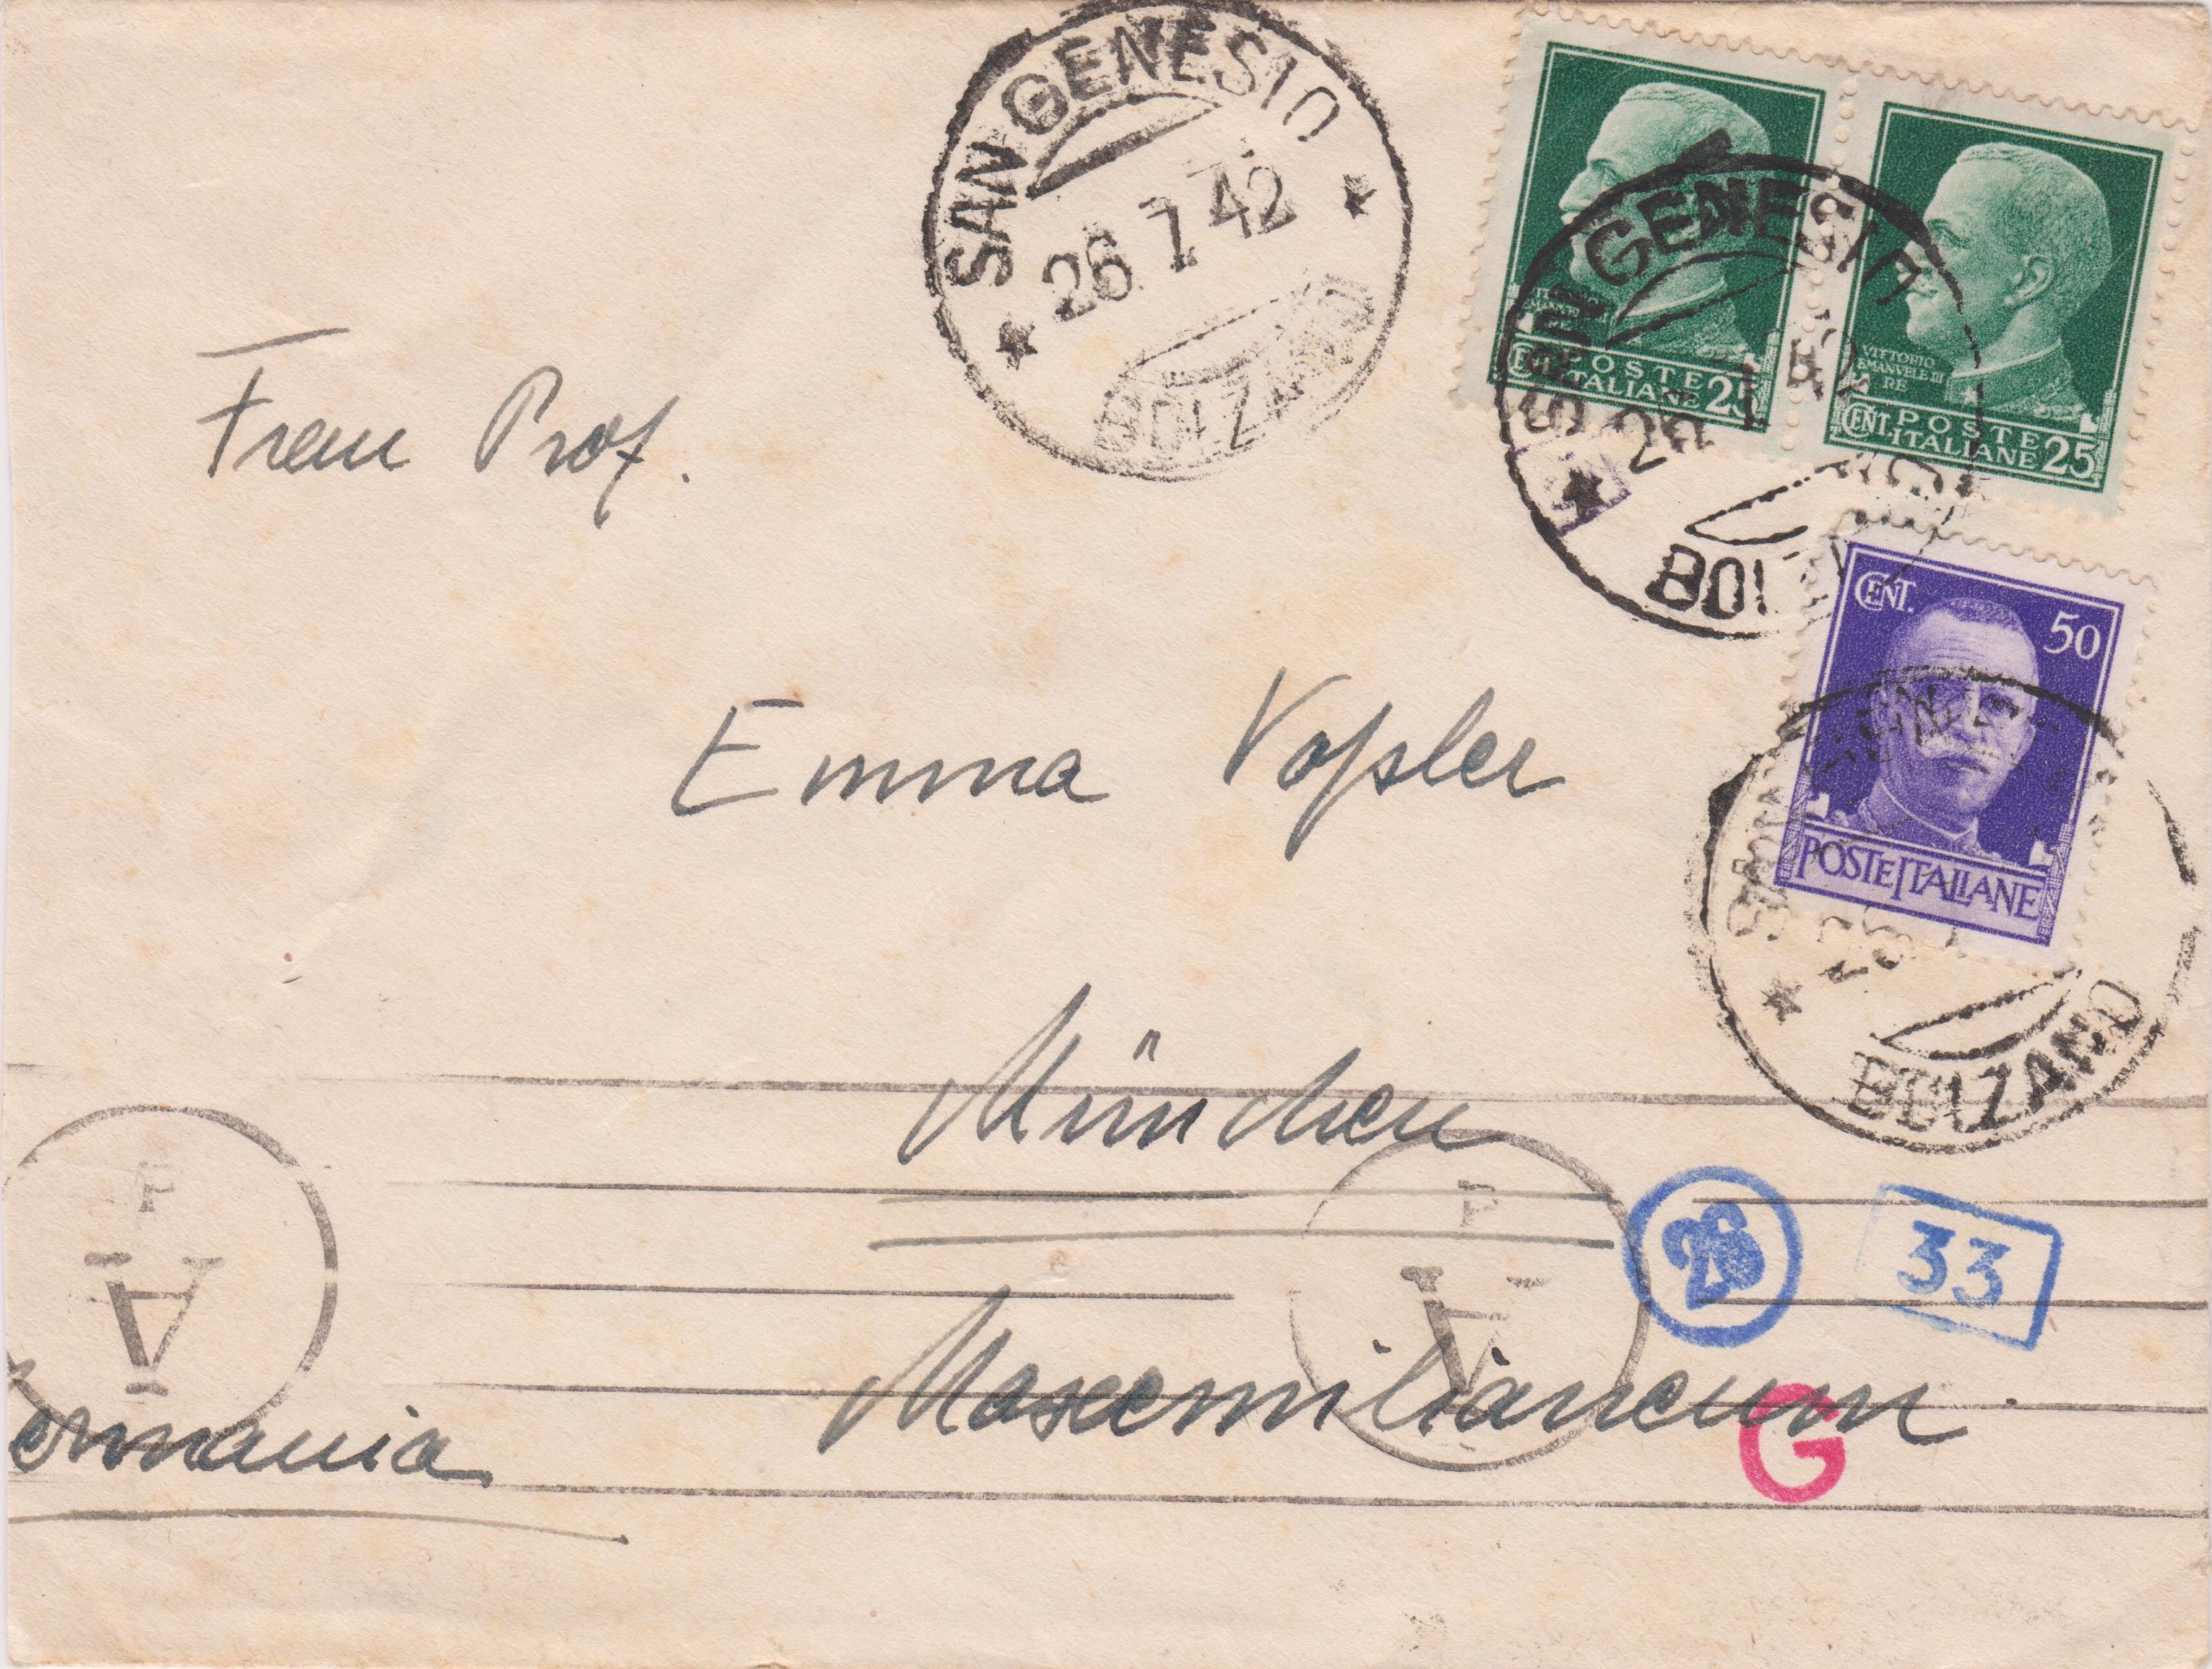 SAN GENESIO
26 7 42
BOLZANO
VITTORIO
EMANVELE III
RE
CENT. POSTE
ITALIANE 25
VITTORIO
EMANVELE III
RE
CENT. POSTE
ITALIANE 25
SAN GENESIO
26 7 42
Frau Prof.
CENT. 50
POSTE ITALIANE
Emma Voßler
SAN GENESIO
BOLZANO
München
P
A
P
A
26
33
Maximilianeum.
G
ermania